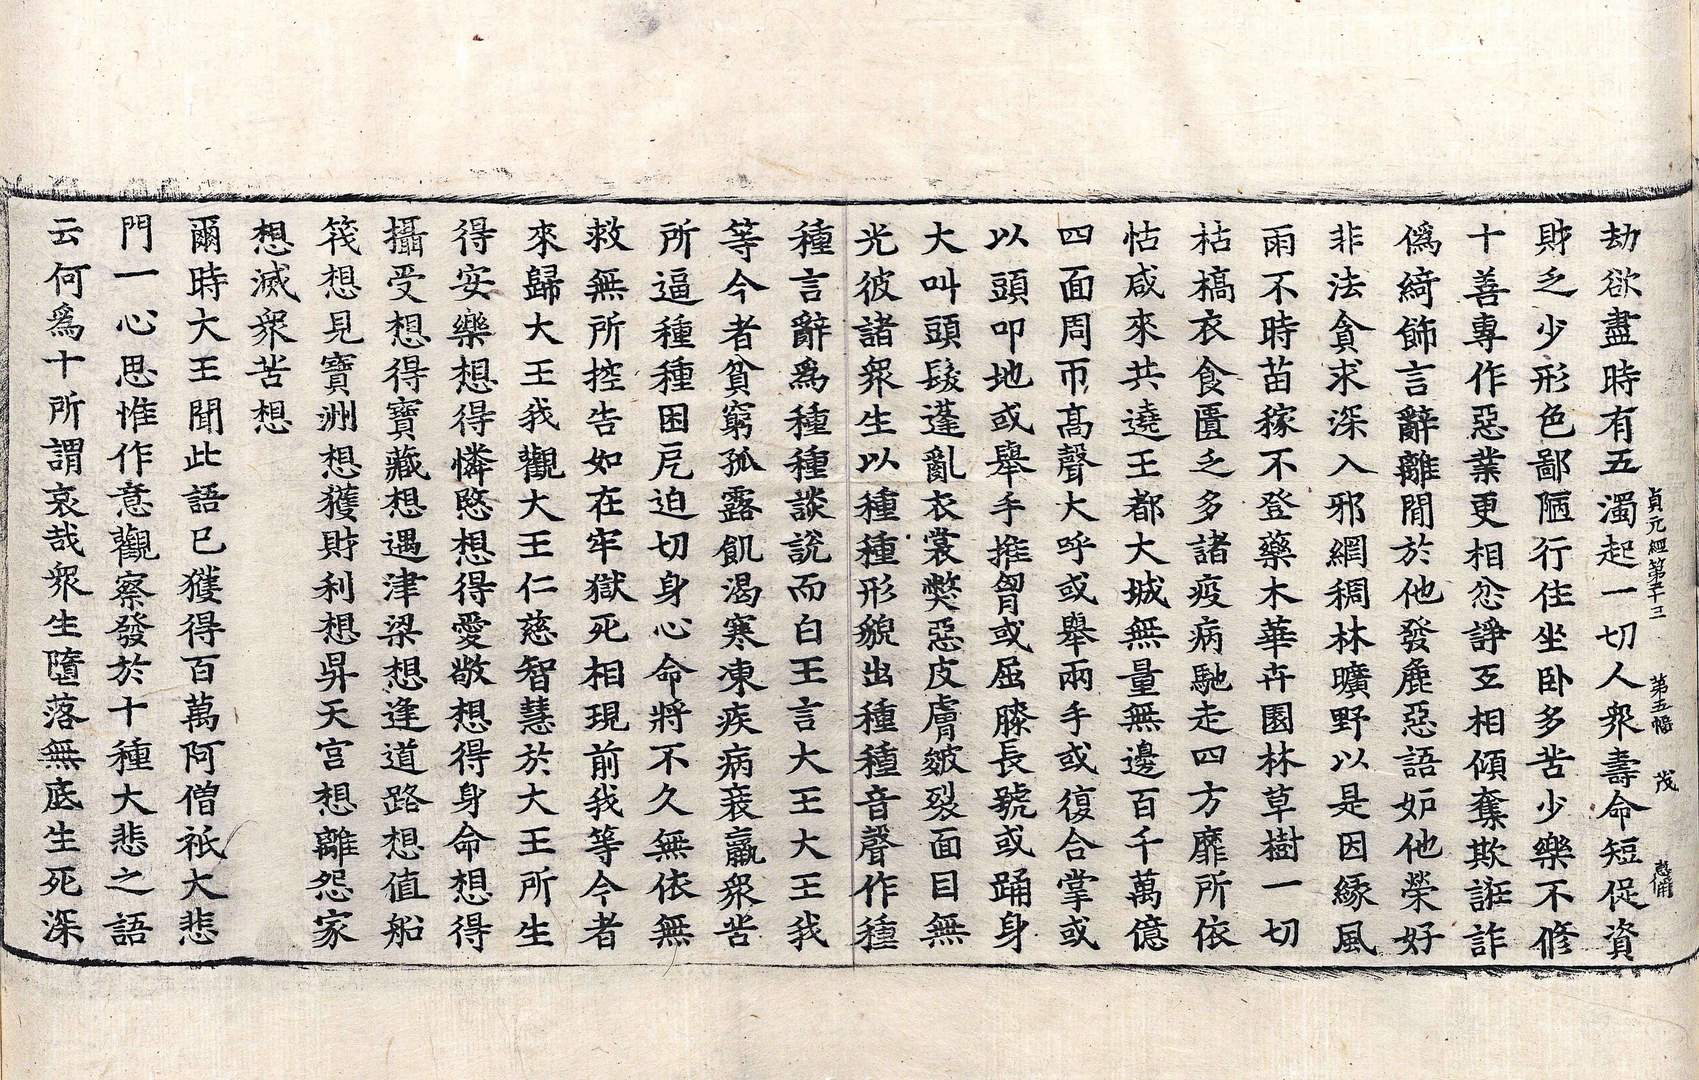 劫欲盡時有五濁起一切人衆壽命短促資
財乏少形色鄙陋行住坐卧多苦少樂不修
十善專作惡業更相忿諍互相傾奪欺誑詐
僞綺飾言辭離間於他發麁惡語妒他榮好
非法貪求深入邪網稠林曠野以是因緣風
雨不時苗稼不登藥木華卉園林草樹一切
枯槁衣食匱乏多諸疫病馳走四方靡所依
怙咸來共遶王都大城無量無邊百千萬億
四面周帀高聲大呼或舉兩手或復合掌或
以頭叩地或舉手推胷或屈膝長號或踊身
大叫頭髮蓬亂衣裳獘惡皮膚皴裂面目無
光彼諸衆生以種種形貌出種種音聲作種
種言辭爲種種談說而白王言大王大王我
等今者貧窮孤露飢渴寒凍疾病衰羸衆苦
所逼種種困戹迫切身心命將不久無依無
救無所控告如在牢獄死相現前我等今者
來歸大王我觀大王仁慈智慧於大王所生
得安樂想得憐愍想得愛敬想得身命想得
攝受想得寶藏想遇津梁想逢道路想值船
筏想見寶洲想獲財利想昇天宮想離怨家
想滅衆苦想
爾時大王聞此語已獲得百萬阿僧祇大悲
門一心思惟作意觀察發於十種大悲之語
云何爲十所謂哀哉衆生墮落無底生死深
貞元經第十三 第五幅 茂